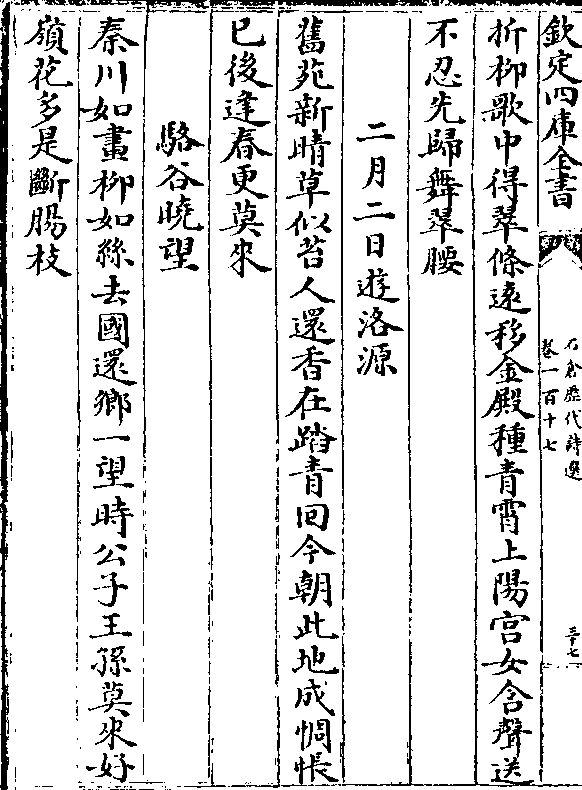 欽定四庫全書
石倉歷代詩選
卷一百十七
三十七
折柳歌中得翠條遠移金殿種青霄上陽宮女含聲送
不忍先歸舞翠腰
二月二日遊洛源
舊苑新晴草似苔人還香在踏青回今朝此地成惆悵
已後逢春更莫來
駱谷曉望
秦川如畫柳如絲去國還鄉一望時公子王孫莫來好
嶺花多是斷腸枝